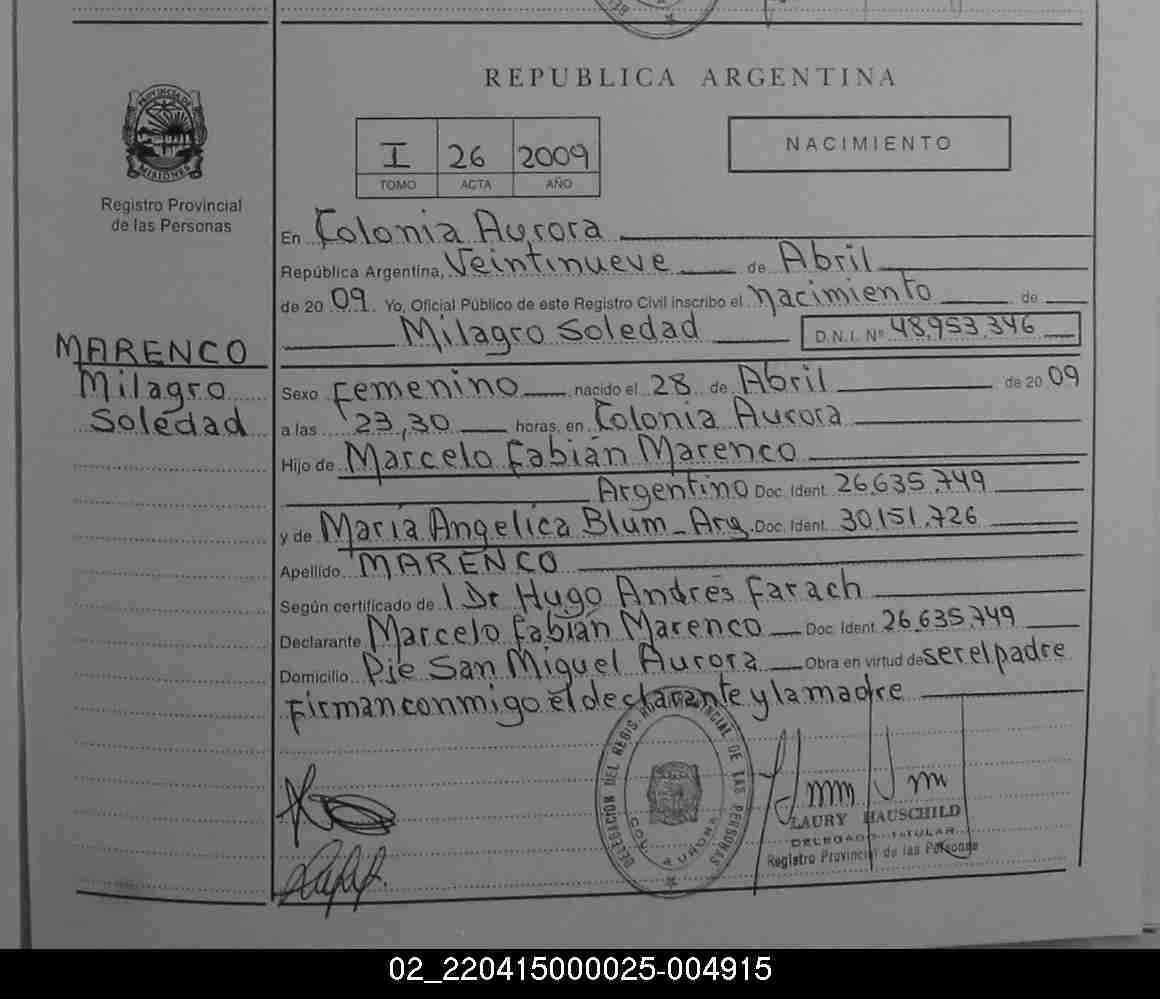 REPUBLICA ARGENTINA
PROVINCIA DE
MISIONES
Registro Provincial
de las Personas
I 26 2009
TOMO ACTA AÑO
NACIMIENTO
En Colonia Aurora
República Argentina, Veintinueve de Abril
de 20 09. Yo, Oficial Público de este Registro Civil inscribo el nacimiento de
Milagro Soledad D.N.I. Nº 48,953,346
MARENCO
Milagro
Soledad
Sexo Femenino nacido el 28 de Abril de 20 09
a las 23,30 horas, en Colonia Aurora
Hijo de Marcelo Fabián Marenco
Argentino Doc. Ident. 26.635.749
y de María Angelica Blum - Arg. Doc. Ident. 30,151,726
Apellido MARENCO
Según certificado de l Dr Hugo Andrés Farach
Declarante Marcelo Fabián Marenco Doc. Ident. 26,635,749
Domicilio Pje San Miguel Aurora Obra en virtud de ser el padre
Firman conmigo el declarante y la madre
DELEGACION DEL REGIS. PROVINCIAL DE LAS PERSONAS
COL. AURORA
LAURY HAUSCHILD
DELEGADO TITULAR
Registro Provincial de las Personas
02_220415000025-004915